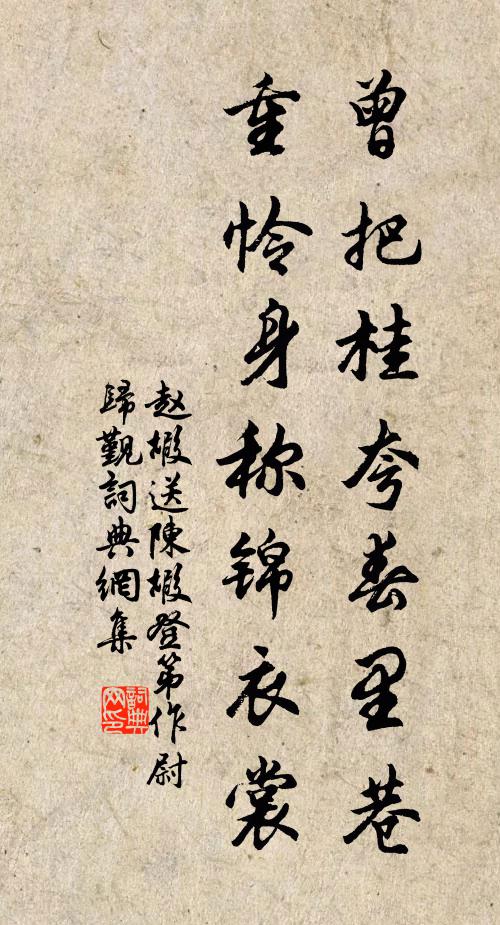 曾把桂夸春里巷
重怜身称锦衣裳
赵嘏送陳嘏登第作尉
歸覲詞典網集
詞典网印